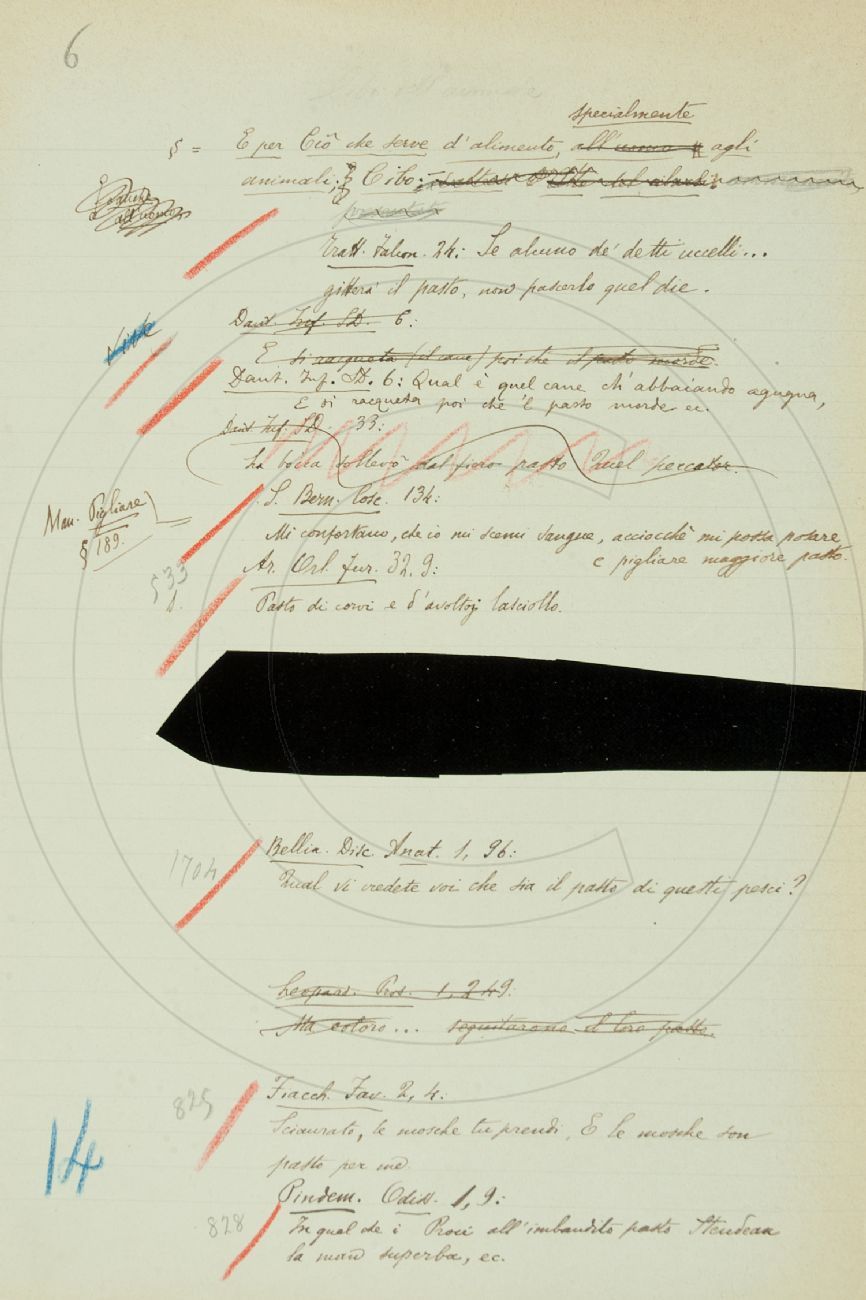 6
specialmente
§ = E per Ciò che serve d'alimento, all'uomo agli
animali; Cibo:
Tratt. Falcon. 24: Se alcuno de' detti uccelli...
gitterà il pasto, non pascerlo quel die.
Dant. Inf. SD. 6:
E si racqueta (il cane) poi che il pasto morde.
Dant. Inf. SD. 6: Qual è quel cane ch'abbaiando agugna,
E si racqueta poi che 'l pasto morde ec.
Dant. Inf. SD. 33:
La bocca sollevò dal fiero pasto Quel peccator.
Man. Pigliare
§ 189.
S. Bern. Cosc. 134:
Mi confortano, che io mi scemi sangue, acciocchè mi possa posare
e pigliare maggiore pasto.
§ 33
Ar. Orl. fur. 32, 9:
Pasto di corvi e d'avoltoj lasciollo.
1704
Bellin. Disc. Anat. 1, 96:
Qual vi credete voi che sia il pasto di questi pesci?
Leopard. Pros. 1, 249:
Ma coloro... seguitarono il loro pasto.
825
Fiacch. Fav. 2, 4:
Sciaurato, le mosche tu prendi, E le mosche son
pasto per me.
14
Pindem. Odiss. 1, 9:
828
In qual che i Proci all'imbandito pasto Stendean
la man superba, ec.